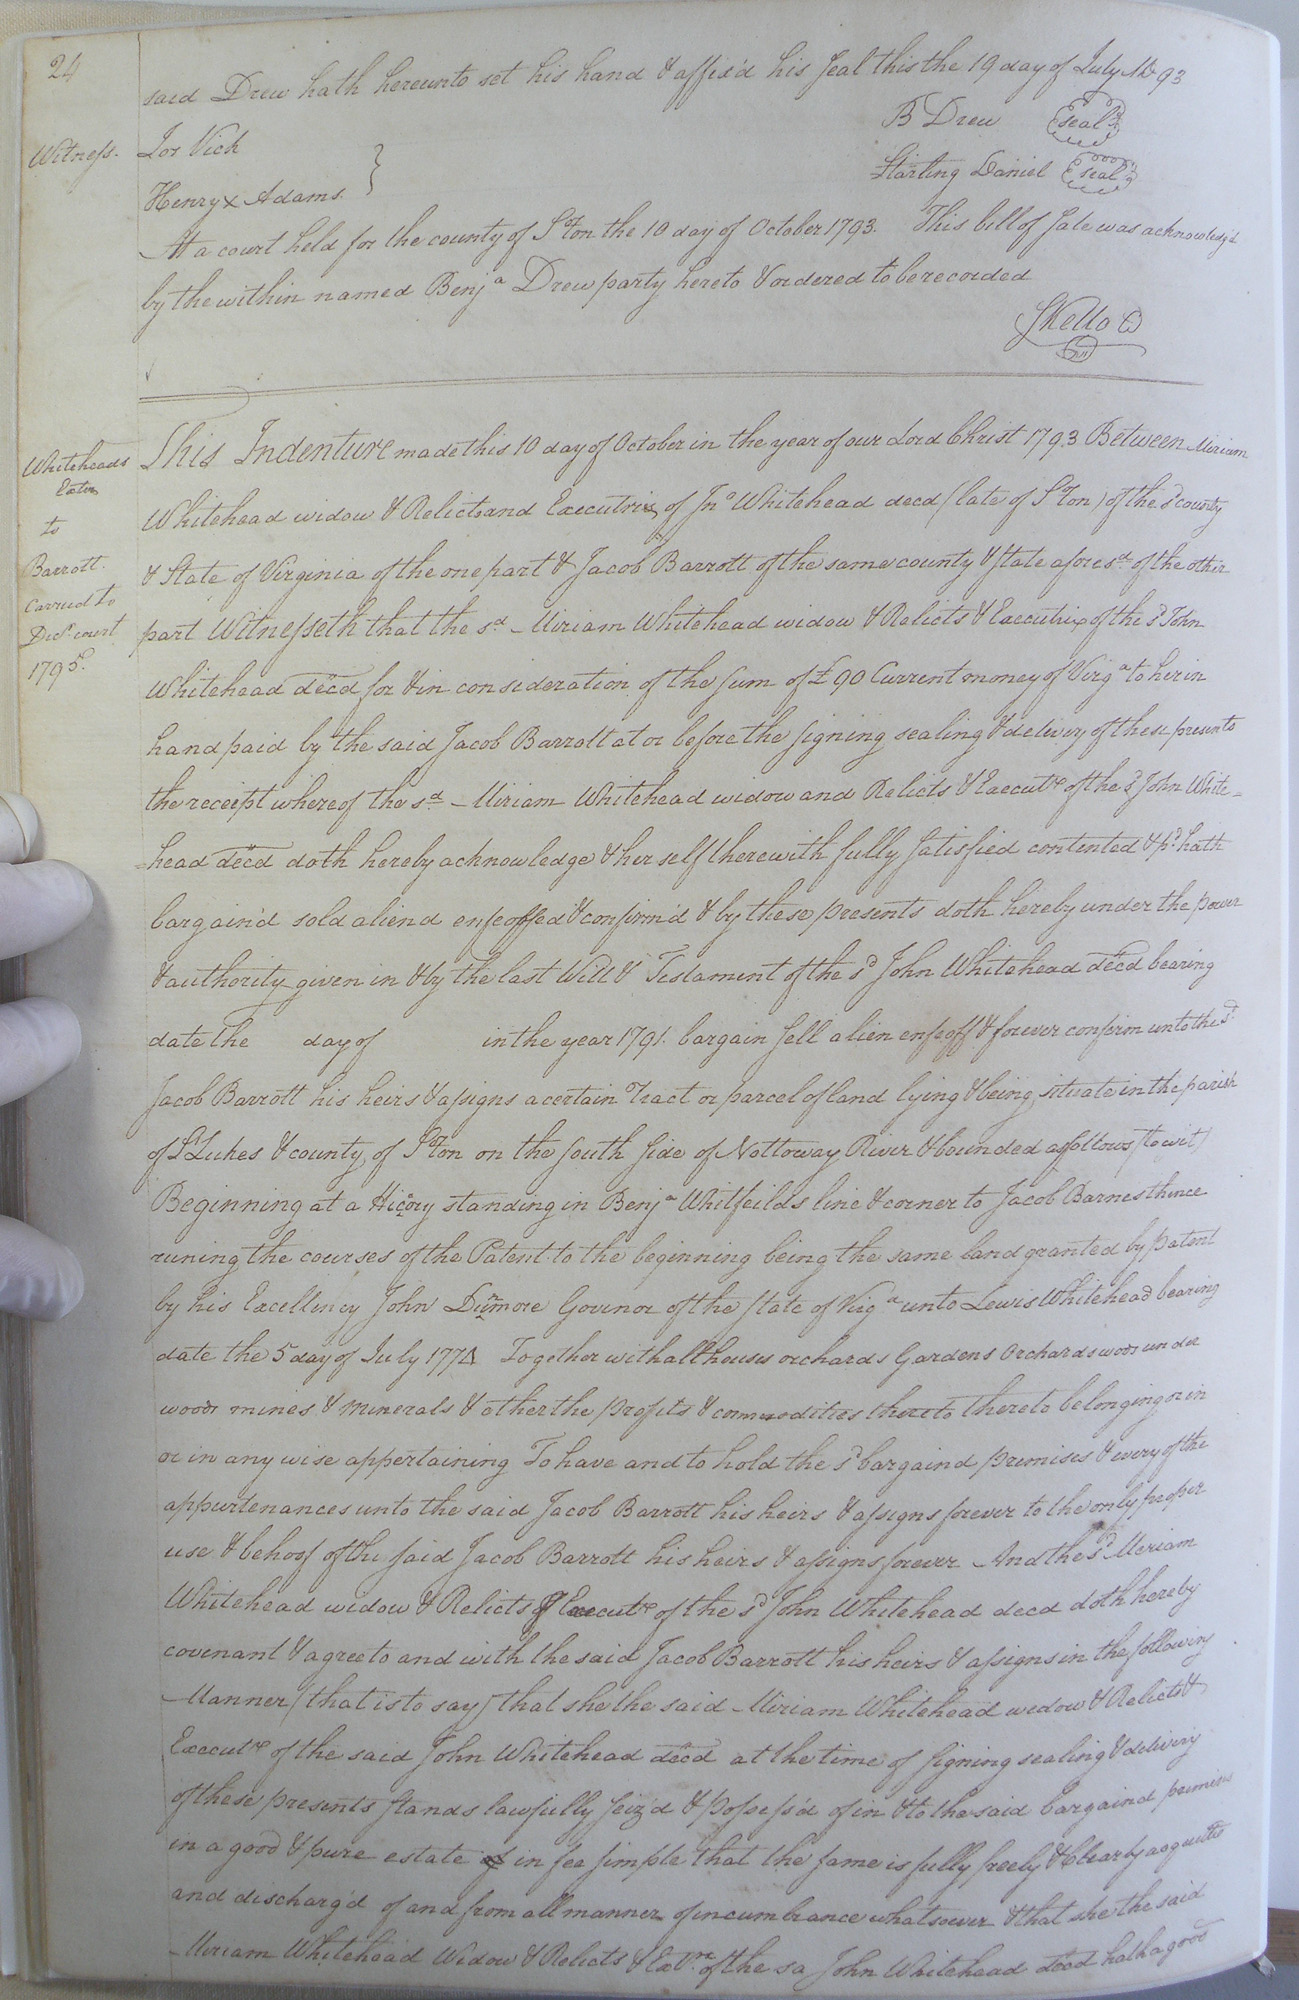 24
said Drew hath hereunto set his hand & affix'd his seal this the 19 day of July AD 93
B Drew seal
Witness. Jos Vick
Starling Daniel seal
Henry x Adams
At a court held for the county of S°ton the 10 day of October 1793. This bill of sale was acknowledg'd
by the within named Benjª Drew party hereto & ordered to be recorded
SKello
Whiteheads
Extrx
to
Barrott.
carried to
Dist. court
1795.
This Indenture made this 10 day of October in the year of our Lord Christ 1793 Between Miriam
Whitehead widow & Relicts and Executrix of Jn° Whitehead decd (late of S°ton) of the sd county
& State of Virginia of the one part & Jacob Barrott of the same county & state aforesd of the other
part Witnesseth that the sd Miriam Whitehead widow & Relicts & Executrix of the sd John
Whitehead decd for & in consideration of the sum of £90 Current money of Virgª to her in
hand paid by the said Jacob Barrott at or before the signing sealing & delivery of these presents
the receipt whereof the sd Miriam Whitehead widow and Relicts & Executx of the sd John White-
=head decd doth hereby acknowledge & her self therewith fully satisfied contented & pd hath
bargain'd sold aliend enfeoffed & confirm'd & by these presents doth hereby under the power
& authority given in & by the last Will & Testament of the sd John Whitehead decd bearing
date the day of in the year 1791. bargain sell alien enfeoff & forever confirm unto the sd
Jacob Barrott his heirs & assigns a certain Tract or parcel of land lying & being situate in the parish
of St Lukes & county of S°ton on the south side of Nottoway River & bounded as follows (to wit)
Beginning at a Hicory standing in Benjª Whitfeilds line & corner to Jacob Barnes thence
runing the courses of the Patent to the beginning being the same land granted by patent
by his Excellency John Dunmore Govenor of the state of Virgª unto Lewis Whitehead bearing
date the 5 day of July 1774 Together with all houses orchards Gardens Orchards woods under
woods mines & minerals & other the profits & commodities thereto thereto belonging or in
or in any wise appertaining To have and to hold the sd bargaind premises & every of the
appurtenances unto the said Jacob Barrott his heirs & assigns forever to the only proper
use & behoof of the said Jacob Barrott his heirs & assigns forever And the sd Meriam
Whitehead widow & Relicts & Executx of the sd John Whitehead decd doth hereby
covenant & agree to and with the said Jacob Barrott his heirs & assigns in the following
Manner (that is to say) that she the said Miriam Whitehead widow & Relicts &
Executx of the said John Whitehead decd at the time of signing sealing & delivery
of these presents stands lawfully seiz'd & possess'd of in & to the said bargaind premises
in a good & pure estate of in fee simple that the same is fully freely & Clearly acquitted
and discharg'd of and from all manner of incumbrance whatsoever & that she the said
Miriam Whitehead Widow & Relicts & Extrx of the sd John Whitehead decd hath a good